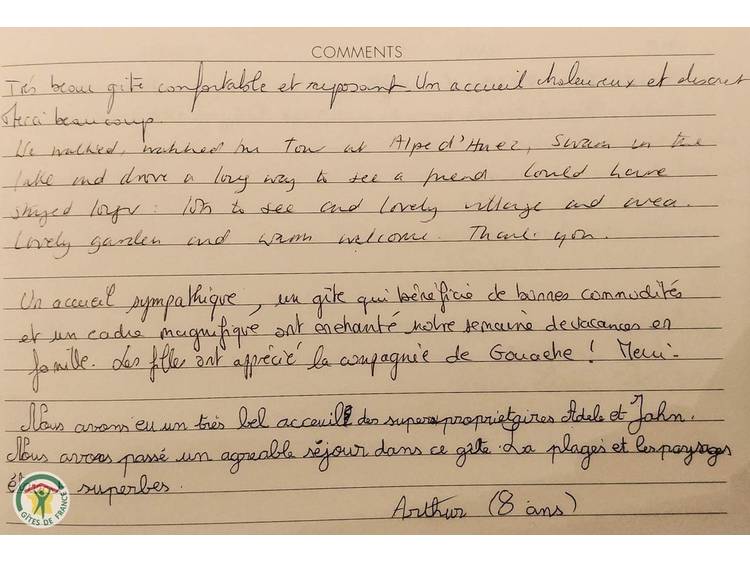 COMMENTS
Très beau gîte confortable et reposant. Un accueil chaleureux et discret
Merci beaucoup.
We walked, watched the Tour at Alpe d'Huez, swam in the
lake and drove a long way to see a friend. Could have
stayed longer: lots to see and lovely village and area.
Lovely garden and warm welcome. Thank you.
Un accueil sympathique, un gîte qui bénéficie de bonnes commodités
et un cadre magnifique ont enchanté notre semaine de vacances en
famille. Les filles ont apprécié la compagnie de Gouache! Merci.
Nous avons eu un très bel acceuil des supers proprietaires Adele et John.
Nous avons passé un agreable séjour dans ce gîte. La plages et les paysages
superbes.
Arthur (8 ans)
GÎTES DE FRANCE